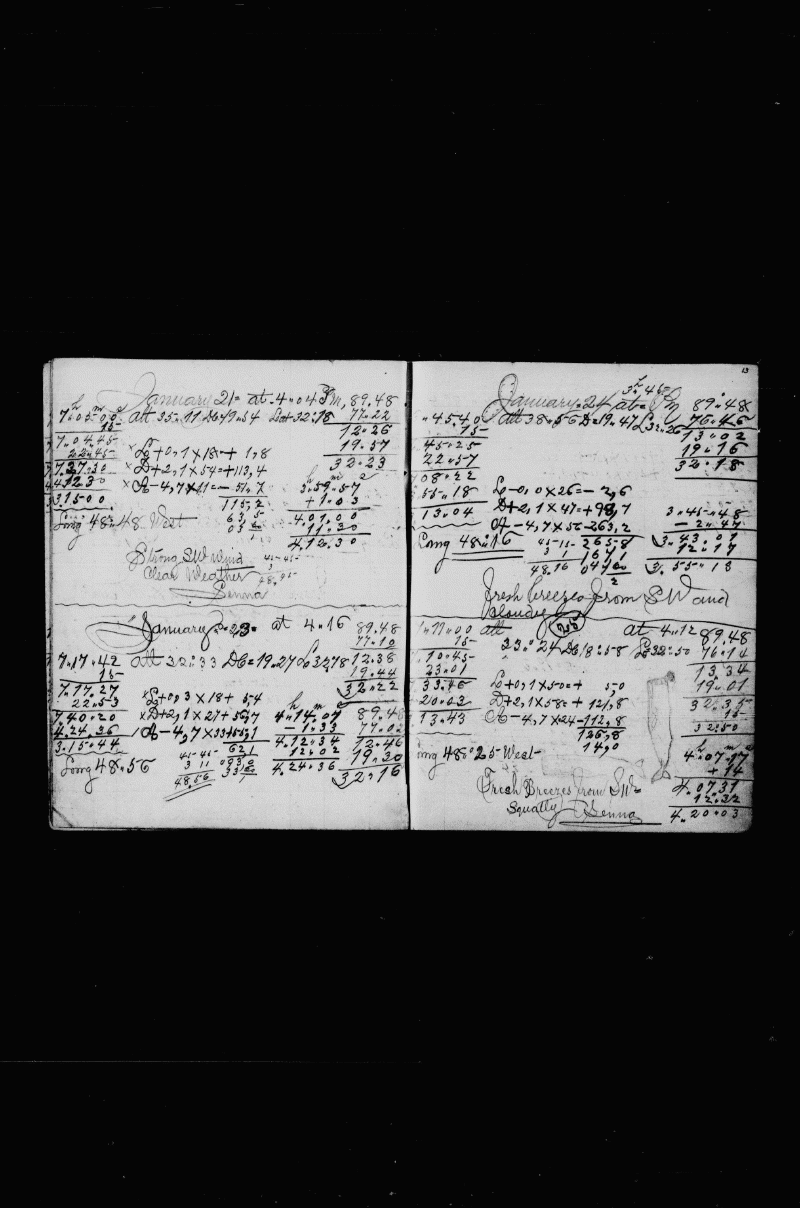 January 21= at 4"04 Pm, 89.48
7h05m00s alt 35"11 Db 19"54 La 32"18 77.22
15 12"26
7.04.45 19.57
22"45 × Lo+0,1×18=+ 1,8 32"23
7.27.30 × D+2,1×54=+113,4
4.12.30 × A-4,7×11=- 51,7 3"59"57
3.15.00 115,2 +1.03
Long 48"48 West 63,5 4.01.00
11.30
4.12.30
Strong SW Wind
Clear Weather
Senna
January 23= at 4"16 89.48
77.10
7.17.42 alt 32"33 Db=19.27 Lo 32"18 12.38
15 19.44
7.17.27 32"22
22"53 × Lo+0,3×18+ 5,4
7.40.20 × D+2,1×27+56,7 4h14m07s 89.48
4.24.36 A-4,7×33+155,1 -1"33 77.02
3.15.44 4.12"34 12.46
Long 48"56 12"02 19.30
48.56 4.24.36 32"16
13
3h46m
January 24 at= Pm 89"48
"45.40 alt 38"56 D=19.47 L 32"26 76.46
15 13"02
45"25 19"16
22"57 32"18
08"22
55"18 Lo-0,0×26=- 2,6
13"04 D+2,1×47=+98,7 3"45"48
A-4,7×56-263,2 -2"47
Long 48"16 265,8 3.43.01
167,1 12"17
48.16 3.55"18
Fresh breezes from SW and
Cloudy
25
"11"00 alt at 4"12 89,48
15 33"24 Db 18"58 Lo 32"50 76"14
10"45 13"34
23"01 19"01
33"46 Lo+0,1×50=+ 5,0 32"35
20"03 D+2,1×58=+ 121,8 15
13"43 A-4,7×24-112,8 32"50
126,8
14,0
ong 48"25 West 4h07m17s
+14
Fresh Breezes from SW= 4.07.31
Squally 12"32
Senna 4.20"03